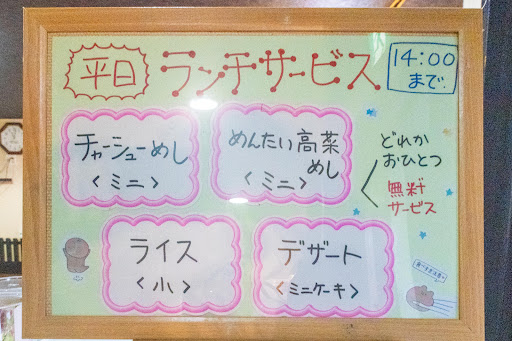 平日 ランチサービス
14:00
まで
チャーシューめし
<ミニ>
めんたい高菜
めし
<ミニ>
どれか
おひとつ
無料
サービス
ライス
<小>
デザート
<ミニケーキ>